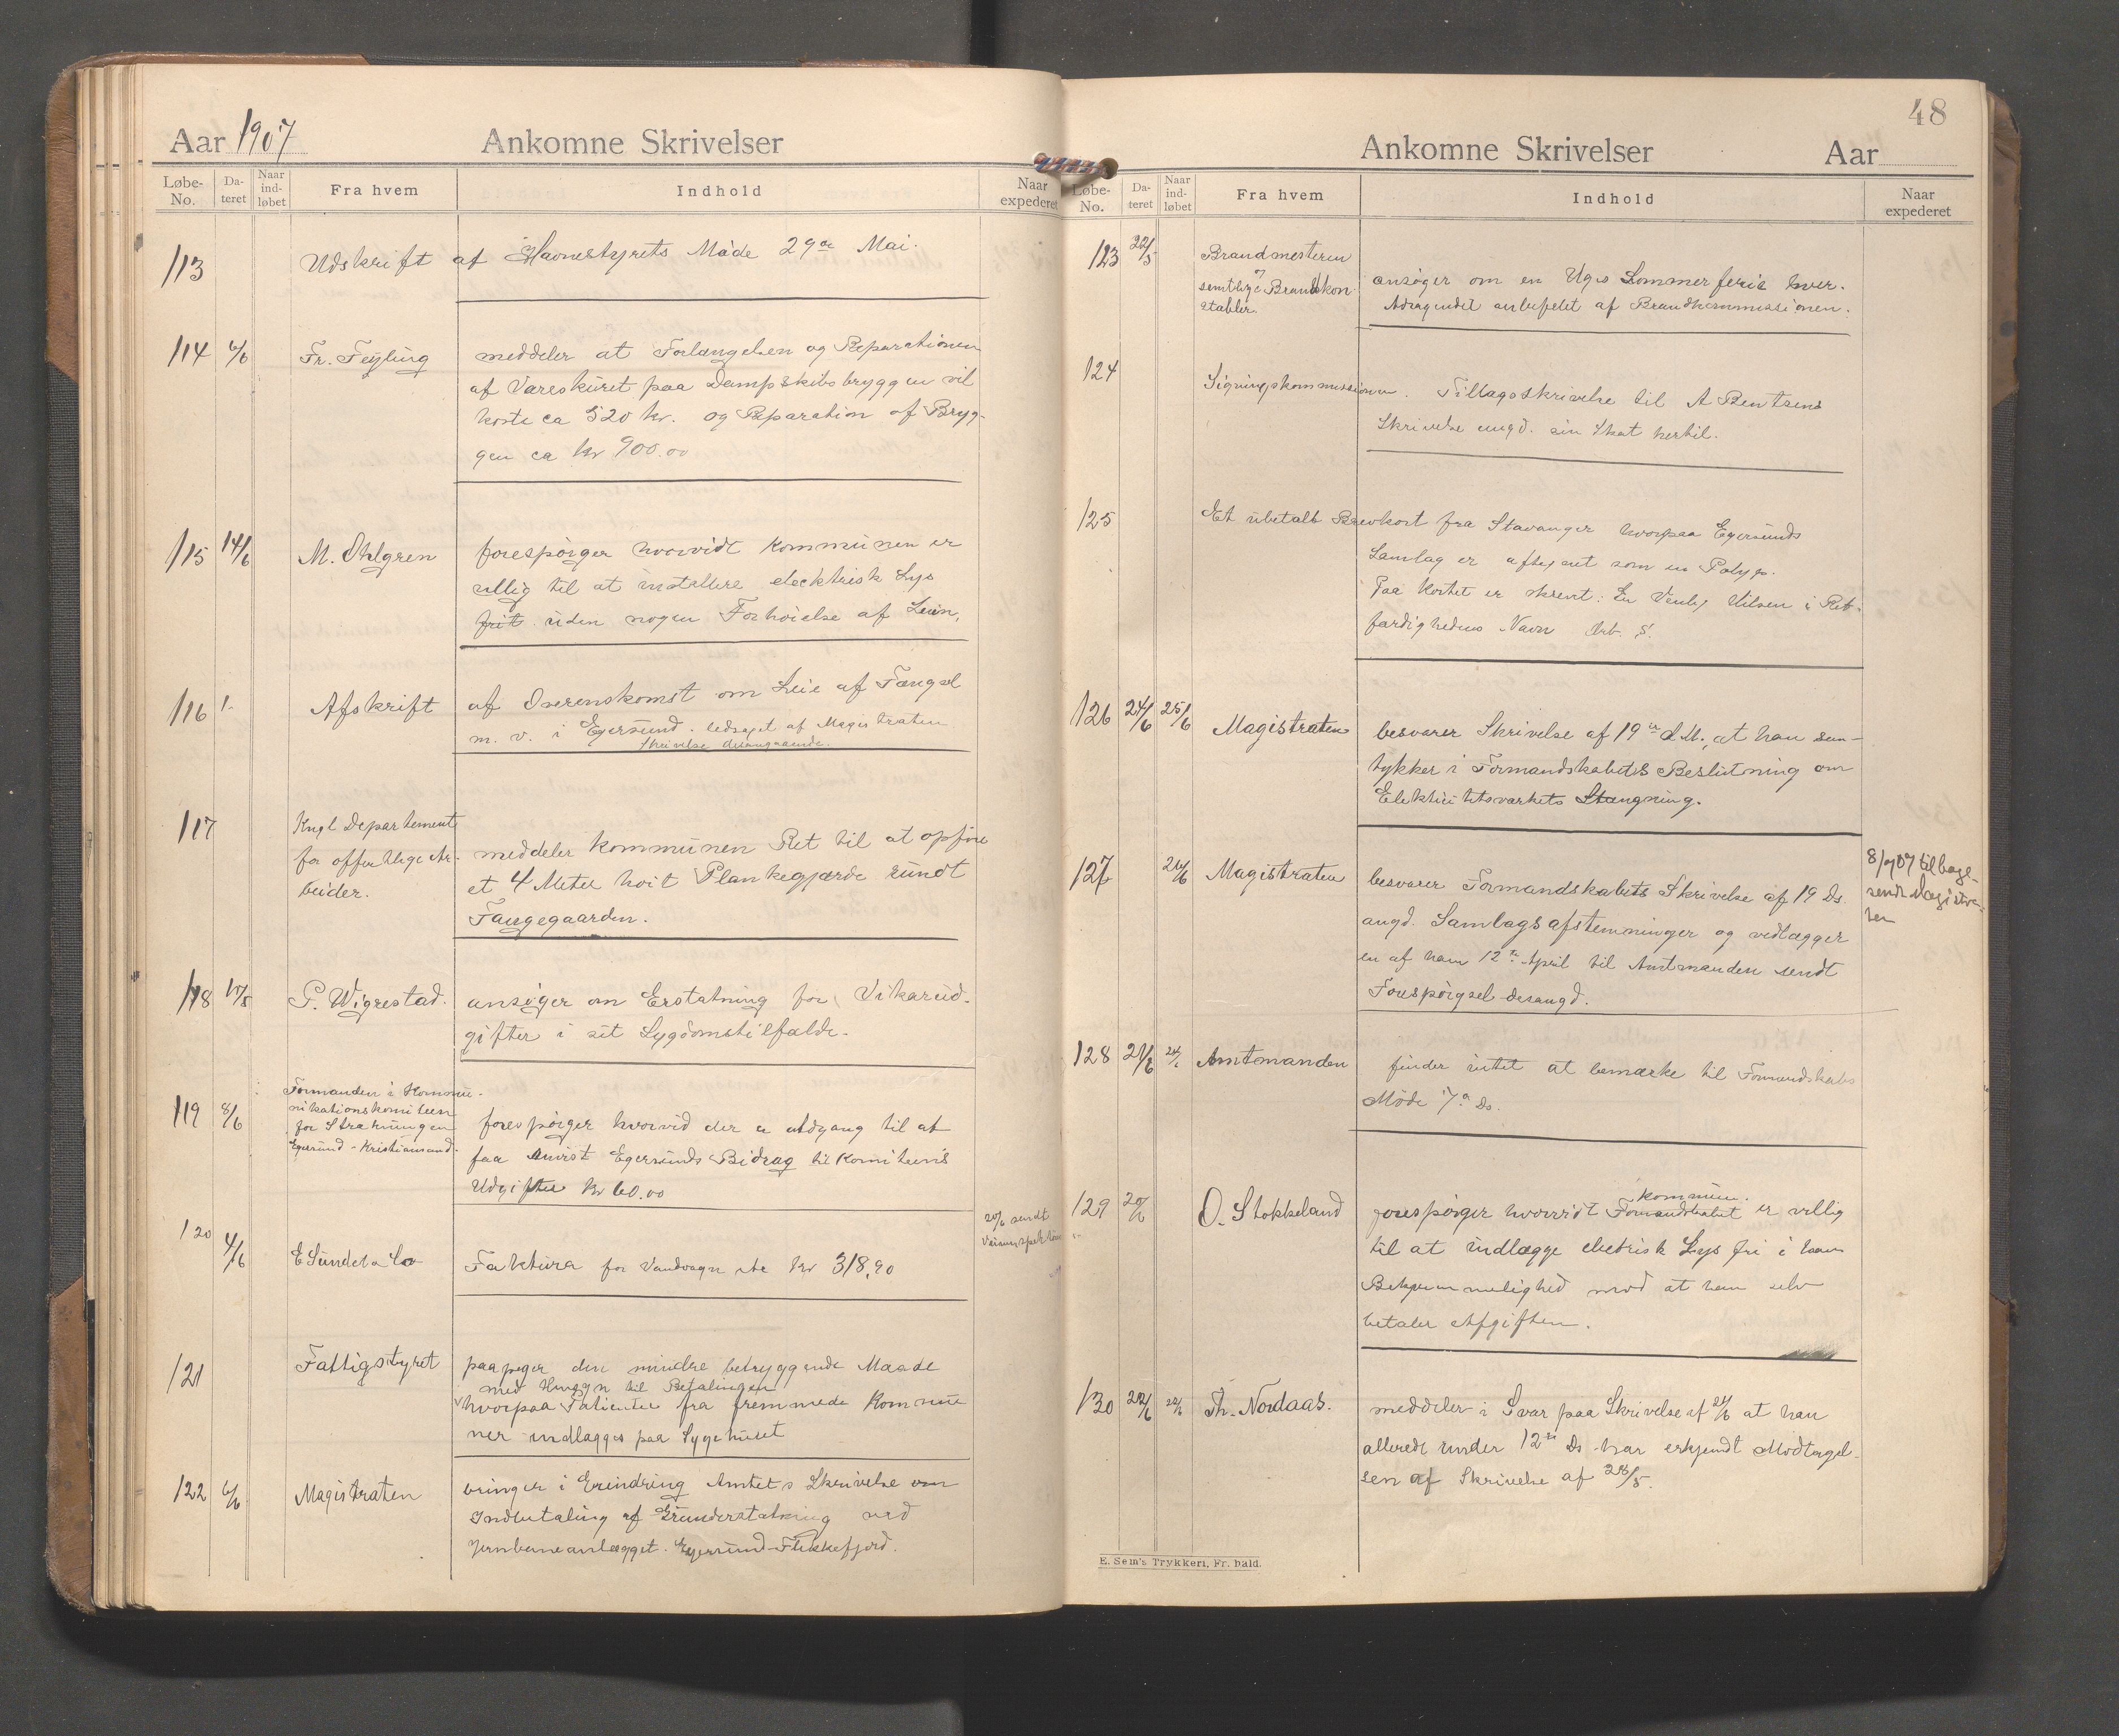 Aar 1907 Ankomne Skrivelser
Løbe-No. Dateret Naar indløbet Fra hvem Indhold Naar expederet
113 Udskrift af Havnestyrets Møde 29de Mai.
114 6/6 Fr. Feyling meddeler at Forlængelsen og Reparationen
af Vareskuret paa Dampskibsbryggen vil
koste ca 520 kr. og Reparation af Bryg-
gen ca kr 900.00
115 14/6 M. Ohlgren forespørger hvorvidt Kommunen er
villig til at installere elecktrisk Lys
frit uden nogen Forhøielse af Leien.
116 Afskrift af Overenskomst om Leie af Fængsel
m. v. i Egersund. ledsaget af Magistraten
Skrivelse desangaaende.
117 Kngl Departement
for offentlige Ar-
beider.
meddeler Kommunen Ret til at opføre
et 4 Meter høit Plankegjærde rundt
Fangegaarden.
118 17/5 P. Wigrestad. ansøger om Erstatning for Vikarud-
gifter i sit Sygdomstilfælde.
119 8/6 Formanden i Kommu-
nikationskomiteen
for Strækningen
Egersund - Kristiansand.
forespørger hvorvid der er adgang til at
faa Anvist Egersunds Bidrag til Komiteens
Udgifter kr 60.00
120 4/6 E Sunde & Co Faktura for Vandvogn etc kr 318,90
20/6 sendt
121 Fattigstyret paapeger den mindre betryggende Maade
med Hensyn til Betalingen
hvorpaa Patienter fra fremmede Kommu
ner indlægges paa Sygehuset
122 6/6 Magistraten bringer i Erindring Amtets Skrivelse om
Indbetaling af Grunderstatning ved
Jernbaneanlægget. Egersund-Flekkefjord.
48
Ankomne Skrivelser Aar
Løbe-No. Dateret Naar indløbet Fra hvem Indhold Naar expederet
123 22/5 Brandmesteren
og
samtlige Brandkon-
stabler.
ansøger om en Uges Sommerferie hver.
Andragendet anbefalet af Brandkommissionen.
124 Ligningskommissionen. Tillægsskrivelse til A Bentsens
Skrivelse angd. sin Skat hertil.
125 Et ubetalt Brevkort fra Stavanger hvorpaa Egersunds
Samlag er aftegnet som en Polyp.
Paa Kortet er skrevt: En Venlig Hilsen i Ret-
færdighedens Navn Arb. S.
126 24/6 25/6 Magistraten besvarer Skrivelse af 19de d.M., at han sam-
tykker i Formandskabets Beslutning om
Elektricitetsværkets Stængning.
127 26/6 Magistraten besvarer Formandskabets Skrivelse af 19 Ds.
angd. Samlagsafstemninger og vedlægger
en af ham 12te April til Amtmanden sendt
Forespørgsel desangd.
8/7 07 tilbage-
sendt Magistra-
ten
128 21/6 24/6 Amtmanden finder intet at bemærke til Formandskabs
Møde 7de Ds.
129 20/6 O. Stokkeland forespørger hvorvidt Formandskabet er villig
Kommun.
til at indlægge electrisk Lys fri i hans
Bekvemmelighed mod at han selv
betaler Afgiften.
130 22/6 24/6 Th. Nordaas. meddeler i Svar paa Skrivelse af 21/6 at han
allerede under 12te Ds har erkjendt Modtagel-
sen af Skrivelse af 28/5.
E. Sem's Trykkeri, Fr.hald.